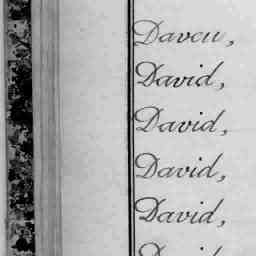 David,
David,
David,
David,
David,